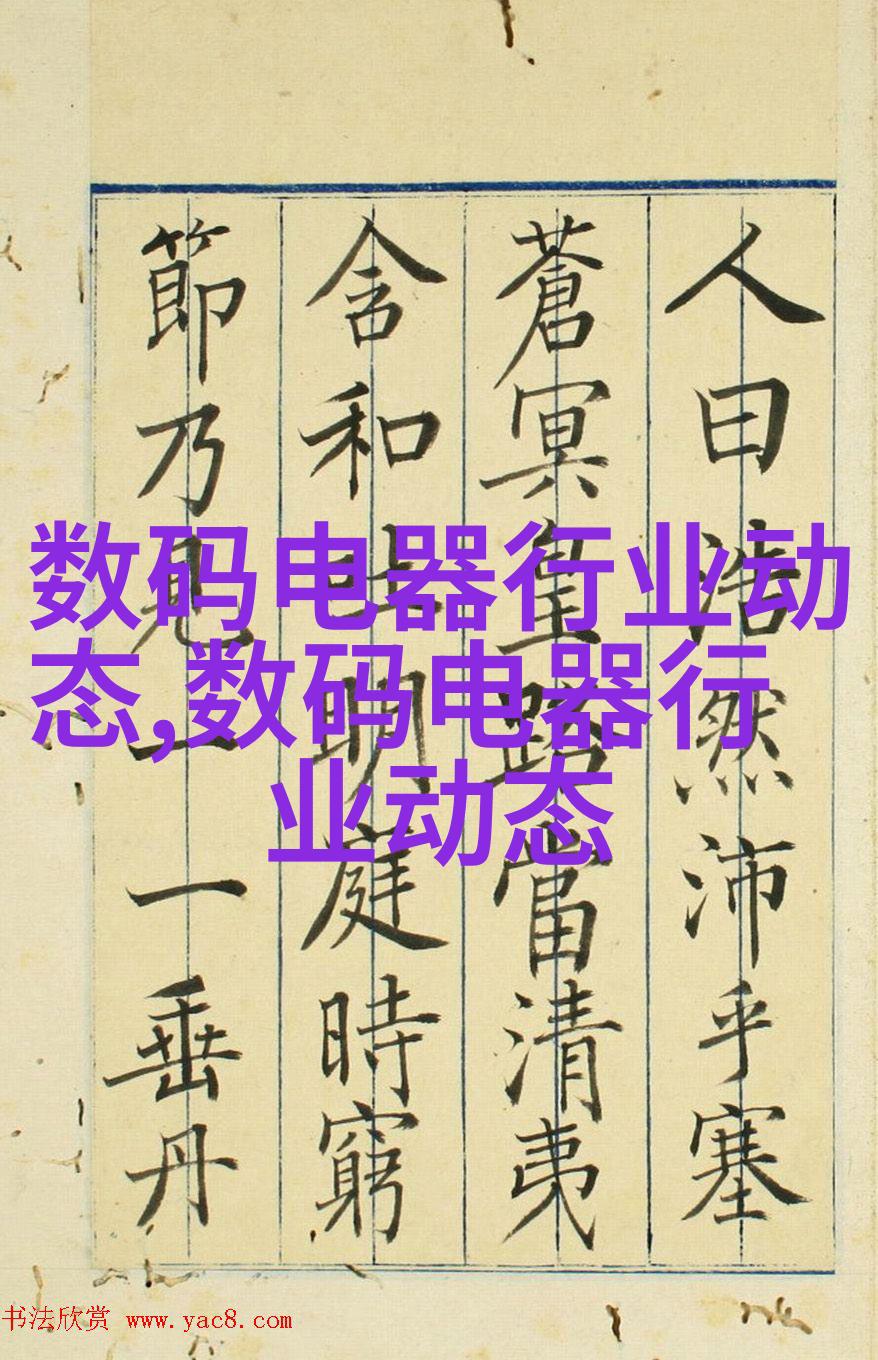 人曰浩然沛乎塞
蒼冥皇路當清夷
含和吐明庭時窮
節乃見一一垂丹
数码电器行业动
态,数码电器行
业动态
书法欣赏 www.yac8.com